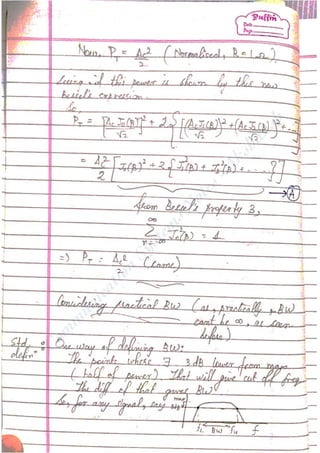 Puffin
Date
Page
Now, P_T = Ac²/2 (Normalised, R = 1Ω)
Seeing if this power is shown by this new
Bessel's expression
So,
P_T = [Ac J₀(β)/√2]² + 2 { [Ac J₁(β)/√2]² + (Ac J₂(β)/√2)² + ...
= Ac²/2 [ J₀(β)² + 2 { J₁²(β) + J₂²(β) + .... } ]
→ (A)
from Bessel's property 3,
∞ Σ n=-∞ Jn²(β) = 1
=> P_T = Ac²/2 (same)
Considering practical BW (as, practically, BW
cant be ∞, as seen
before)
Std. defin : One way of defining BW:
The points where ∃ 3 dB lower from max
(half of power) That will give cut off freq
The diff of that gives BW
So, for any signal, say
max
3dB
fL BW fH f